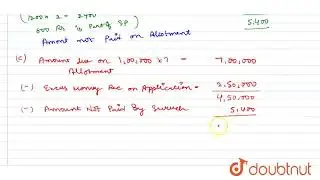 (1200 x 2 = 2400
600 Rs is Part of SP)
5,400
Amount not Paid on Allotment
(c) Amount due on 1,00,000 x 7 = 7,00,000
Allotment
(-) Excess money Rec on Application = 2,50,000
4,50,000
(-) Amount Not Paid By Suresh 5,400
doubtnut